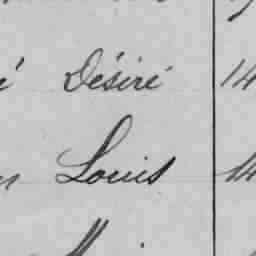 Désiré 14
Louis 14